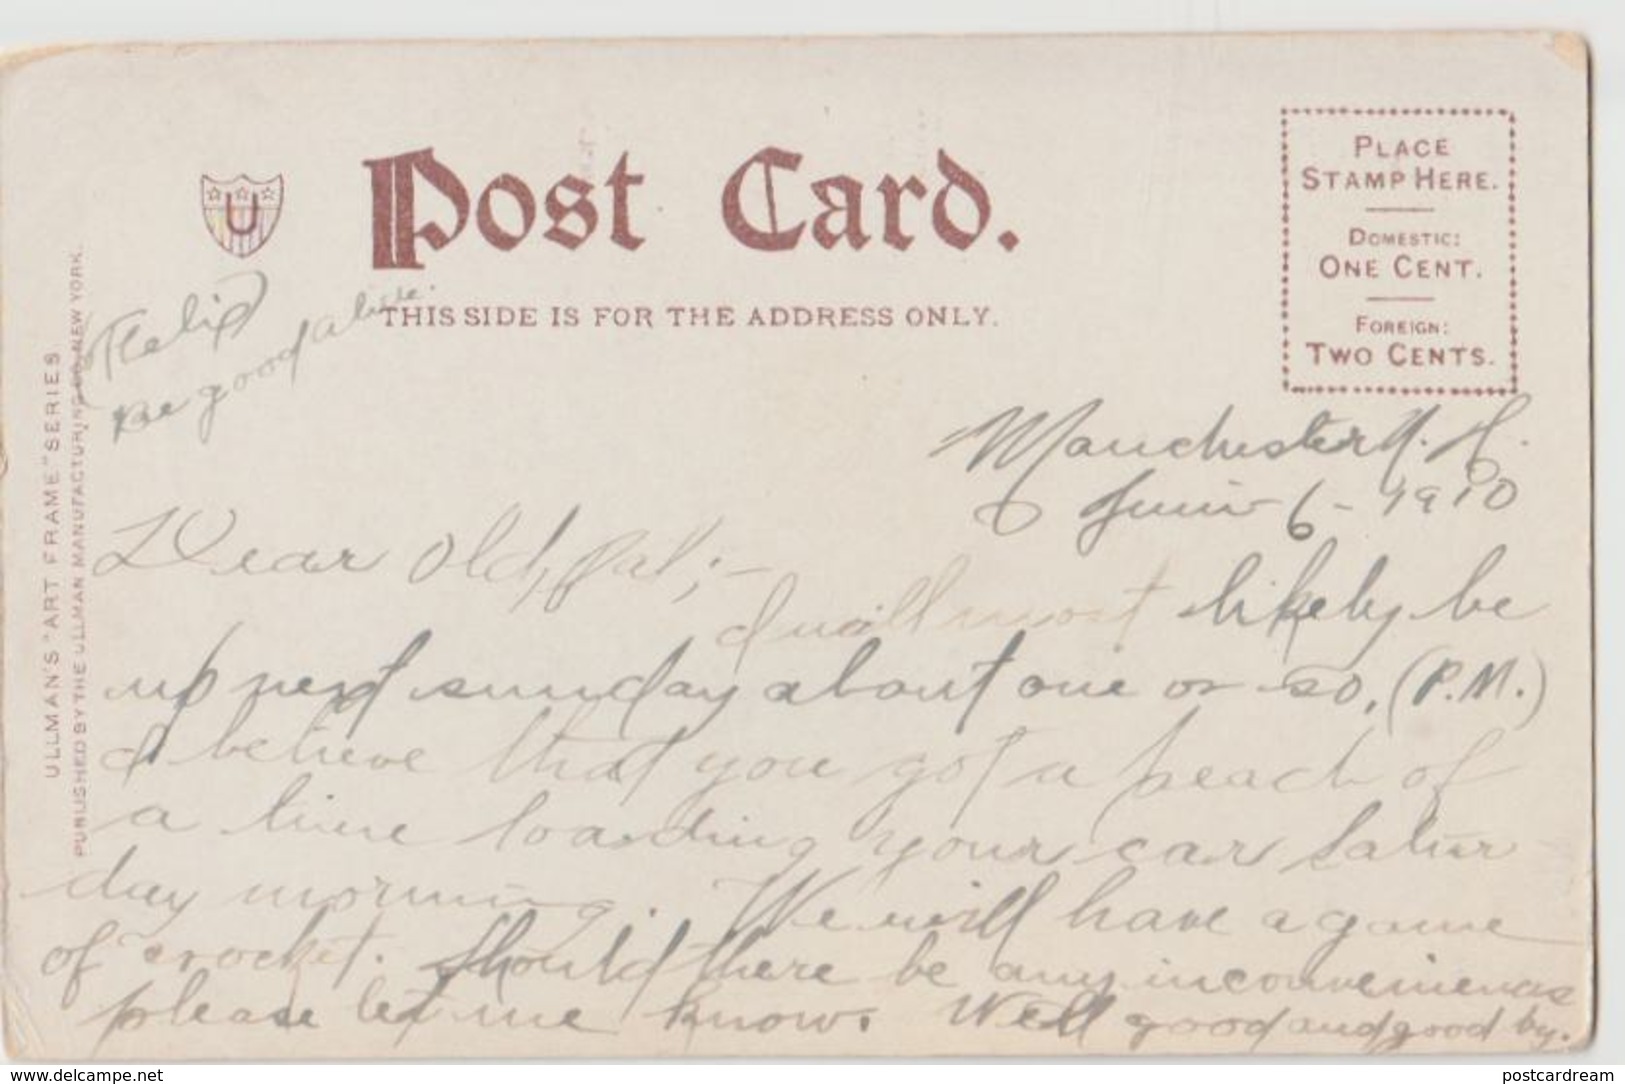 U
Post Card.
THIS SIDE IS FOR THE ADDRESS ONLY.
PLACE
STAMP HERE.
DOMESTIC:
ONE CENT.
FOREIGN:
TWO CENTS.
ULLMAN'S "ART FRAME" SERIES
PUBLISHED BY THE ULLMAN MANUFACTURING CO. NEW YORK.
Felix
Be good
Manchester N. H.
June 6 - 1910
Dear Old, Pal; -
I will most likely be
up next sunday about one or so. (P.M.)
I believe that you got a peach of
a time loading your car Satur
day morning. We will have a game
of crocket. Should there be any
please let me know. Well good and good by.
www.delcampe.net
postcardream